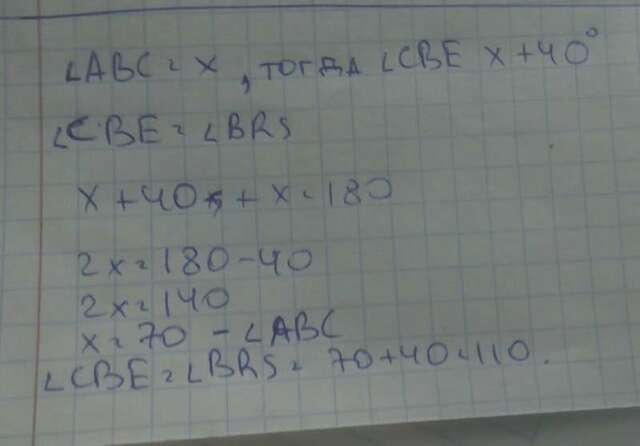 ∠ABC = x, тогда ∠CBE x + 40°
∠CBE = ∠BRS
x + 40 + x = 180
2x = 180 - 40
2x = 140
x = 70 - ∠ABC
∠CBE = ∠BRS = 70 + 40 = 110.